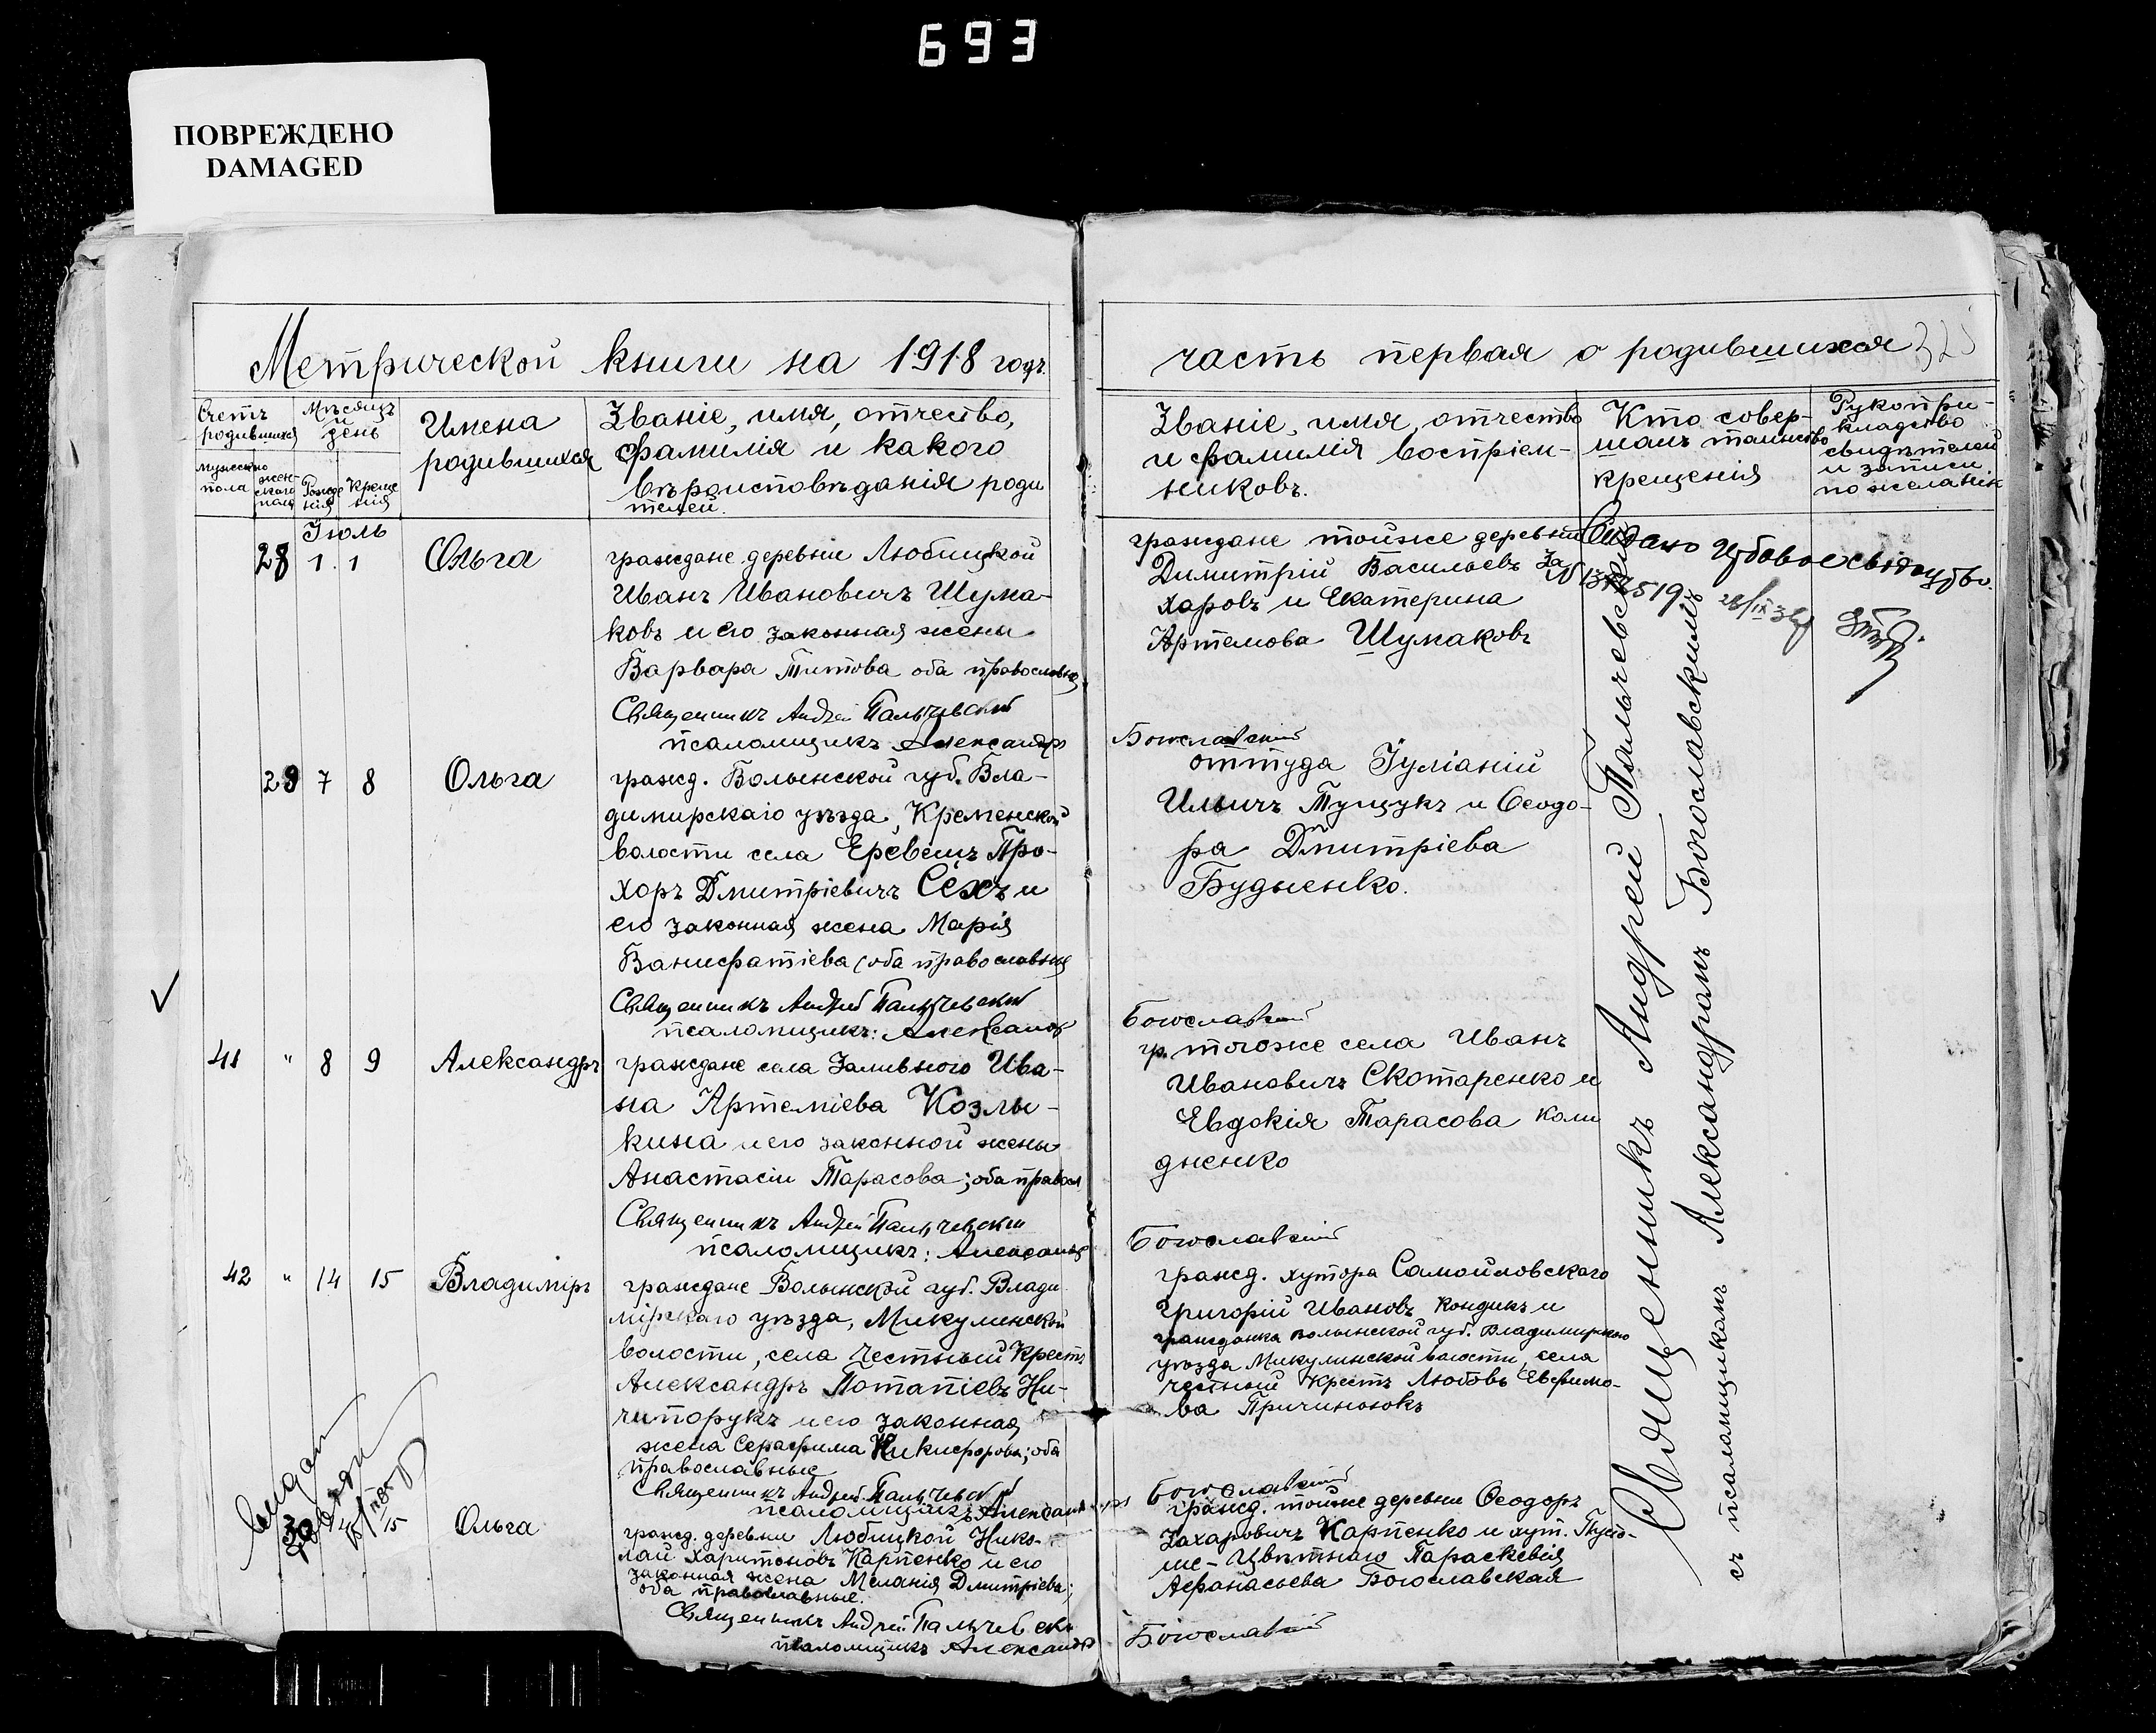 693
ПОВРЕЖДЕНО
DAMAGED
Метрической книги на 1918 годъ.
часть первая о родившихся 325
Счетъ родившихся
Мѣсяцъ и день
Имена родившихся
Званіе, имя, отчество,
фамилія и какого
вѣроисповѣданія роди
телей.
мужеско
пола
жен-
скаго
пола
Рожде
нія
Креще
нія
Званіе, имя, отчество
и фамилія воспріем-
никовъ.
Кто совер-
шалъ таинство
крещенія
Рукопри-
кладство
свидѣтелей
и записи
по желанію
Іюль
28 1 1 Ольга
граждане деревни Любицкой
Иванъ Ивановичъ Шума-
ковъ и его законная жена
Варвара Титова оба православн
Священникъ Андрей Пальчевский
псаломщикъ Александръ
граждане тойже деревни
Димитрій Васильевъ За
харовъ и Екатерина
Артемова Шумаковъ
Богославский
Видано
28/IX 34
29 7 8 Ольга
гражд. Волынской губ. Вла-
димирскаго уѣзда, Кременской
волости села Еревичъ Про-
хоръ Дмитріевичъ Сехъ и
его законная жена Марія
Ванифатіева (оба православные
Священникъ Андрей Пальчевский
псаломщикъ: Александръ
оттуда Іуліаній
Ильичъ Тущукъ и Ѳеодо-
ра Дмитріева
Будненко.
Богославский
41 " 8 9 Александръ
граждане села Заливного Ива-
на Артеміева Козлы-
кина и его законной жены
Анастасіи Тарасова; оба правосл
Священникъ Андрей Пальчевский
псаломщикъ: Александръ
гр. тогоже села Иванъ
Ивановичъ Скотаренко и
Евдокія Тарасова Коли
дненко
Богославский
42 " 14 15 Владиміръ
граждане Волынской губ. Влади
мірскаго уѣзда, Микулинской
волости, села Честный Крестъ
Александръ Потапіевъ Ни-
чипорукъ и его законная
жена Серафима Никифорова; оба
православные
Священникъ Андрей Пальчевский
псаломщикъ: Александръ
гражд. хутора Самойловскаго
Григорій Ивановъ Кондикъ и
гражданка Волынской губ. Владимирского
уѣзда Микулинской волости, села
Честный Крестъ Любовь Евфимо-
ва Причинюкъ
Богославский
30 Ольга
гражд. деревни Любицкой Нико-
лай Харитоновъ Карпенко и его
законная жена Меланія Дмитріева;
оба православные.
Священникъ Андрей Пальчевски
псаломщикъ Александръ
гражд. тойже деревни Ѳеодоръ
Захаровичъ Карпенко и хут.
Цвѣтнаго Параскевія
Афанасьева Богославская
Богославский
Священникъ Андрей Пальчевский
съ псаломщикомъ Александромъ Богославскимъ